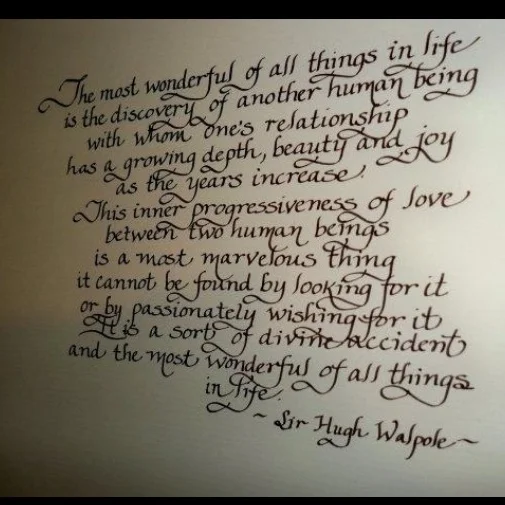 The most wonderful of all things in life
is the discovery of another human being
with whom one's relationship
has a growing depth, beauty and joy
as the years increase.
This inner progressiveness of love
between two human beings
is a most marvelous thing
it cannot be found by looking for it
or by passionately wishing for it
It is a sort of divine accident
and the most wonderful of all things
in life.
~ Sir Hugh Walpole ~